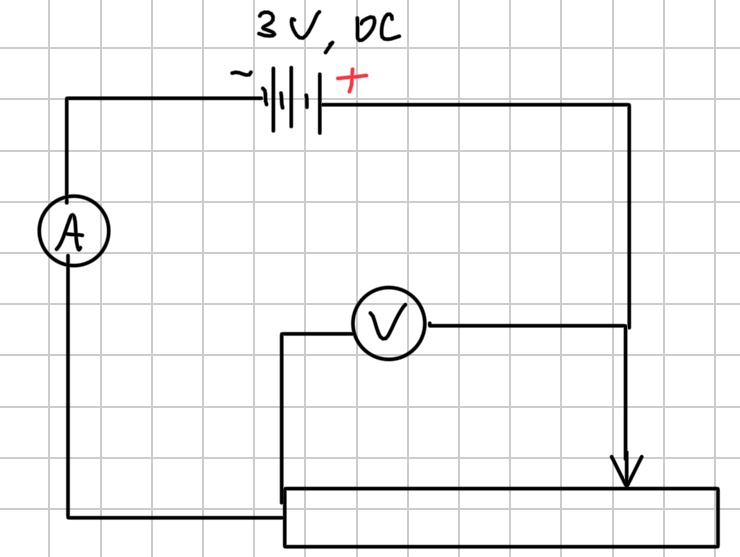 3 V, DC
~ +
A
V